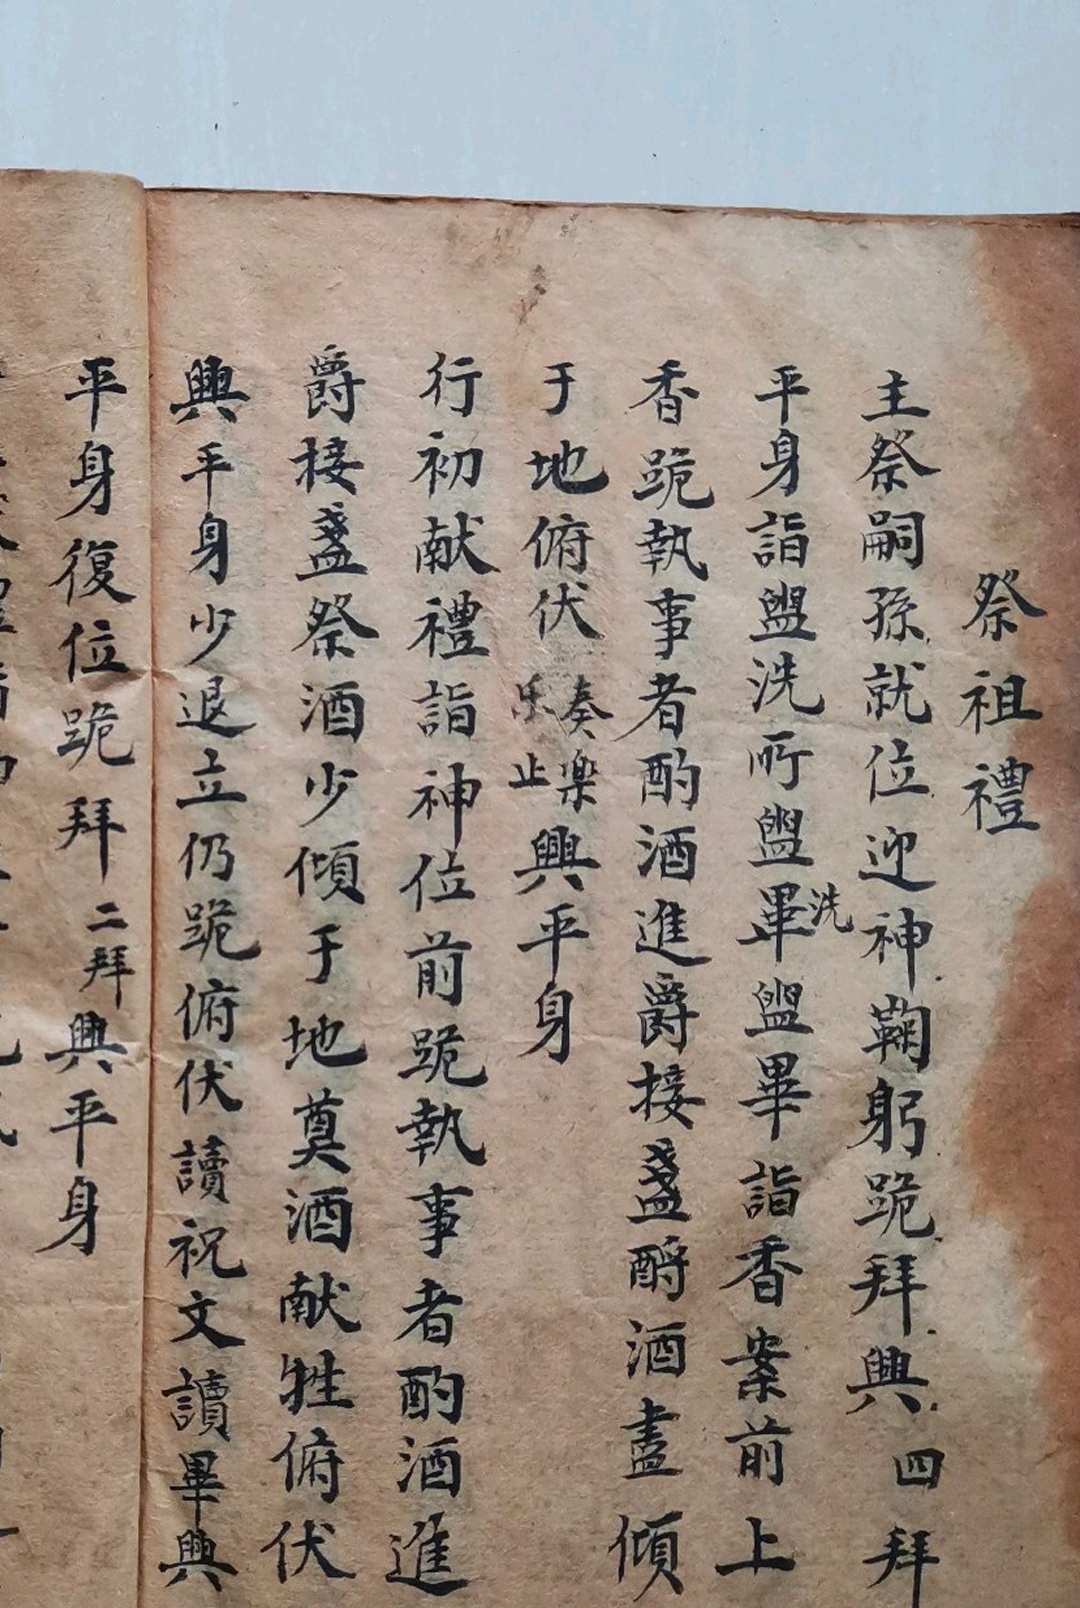 祭祖禮
主祭嗣孫就位迎神鞠躬跪拜興四拜
平身詣盥洗所盥畢洗盥畢詣香案前上
香跪執事者酌酒進爵接盞酹酒盡傾
于地俯伏奏樂乐止興平身
行初献禮詣神位前跪執事者酌酒進
爵接盞祭酒少傾于地奠酒献牲俯伏
興平身少退立仍跪俯伏讀祝文讀畢興
平身復位跪拜二拜興平身